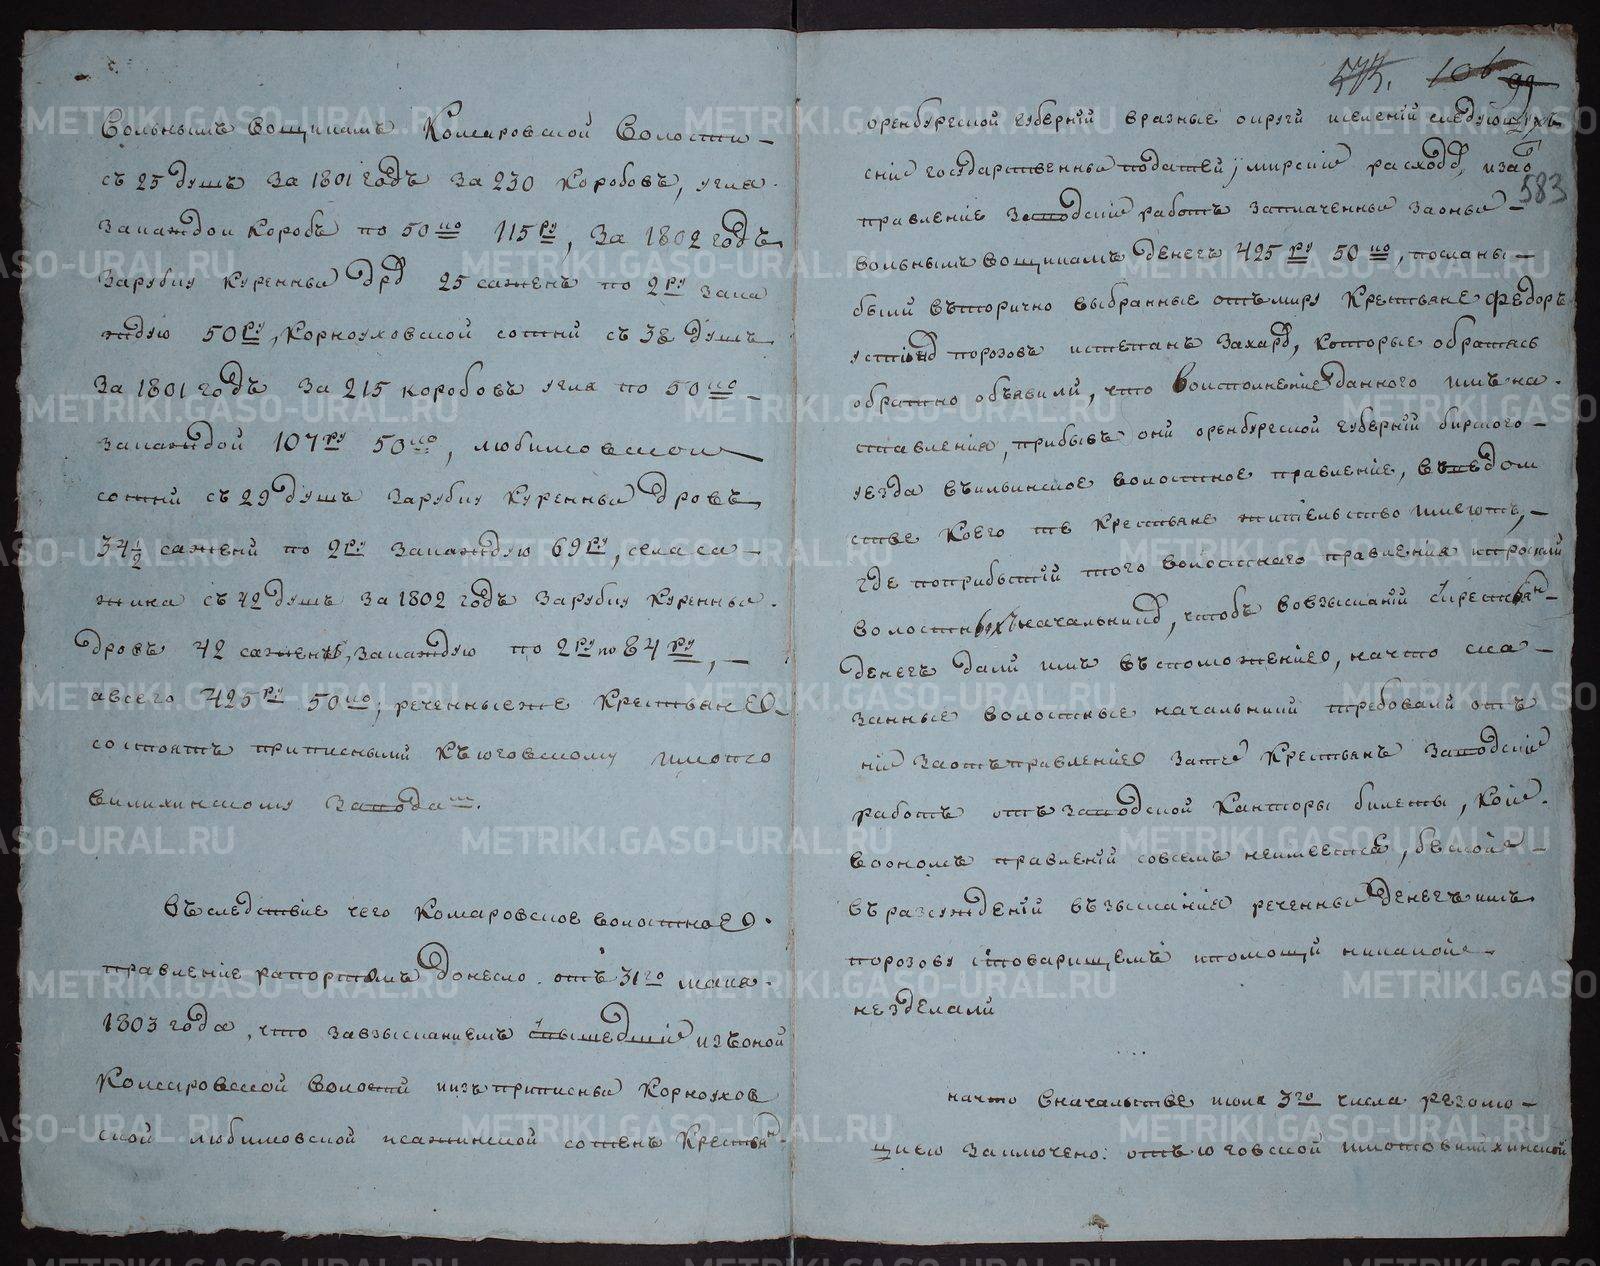 вольнымъ вощикамъ Комаровской волости –
съ 25 душъ за 1801 годъ за 230 коробовъ, угля
закаждои коробъ по 50 ко 115 ру, За 1802 годъ
зарубку куренныхъ дровъ 25 саженъ по 2 ру зака
ждую 50 ру, Корноуховской сотни съ 38 душъ
За 1801 годъ за 215 коробовъ угля по 50 ко –
закаждой 107 ру 50 ко, любимовскои
сотни съ 29 душъ зарубку куренныхъ дровъ
34 1/2 сажени по 2 ру закаждую 69 ру, села са –
жина съ 42 душъ за 1802 годъ зарубку куренныхъ
дровъ 42 сажени, закаждую по 2 ру по 84 ру, –
авсего 425 ру 50 ко, реченныеже крестьяне
состоятъ приписными къюговскому
заводамъ.
Въследствие чего Комаровское волостное
правление рапортомъ донесло отъ 31го маия
1803 года, что завзысканиемъ сышедшихъ изъоной
Комаровской волости иизъприписныхъ Корноухов
ской любимовской исажинской сотенъ крестьянъ
573. 106 99
оренбургской губернии вразные округи иселении следующихъ
583
сних государственныхъ податей, мирскихъ расходовъ, изао
правление заводскихъ работъ заплаченныхъ заоныхъ –
вольнымъ вощикамъ денегъ 425 ру 50 ко, посланы –
были въторично выбранные отъмиру крестьяне Федоръ
порозовъ истепанъ Захаровъ, которые обратясь
обратно объявили, что воисполнение данного имъ на
ставления, прибывъ они оренбургской губернии бирского –
уезда въильинское волостное правление, въведом
стве коего те крестьяне жительство имеютъ, –
где поприбытии того волостнаго правления ипросили
волостныхъ началниковъ, чтобъ вовзыскании скрестьян –
денегъ дали имъ въспоможение, начто ска –
занные волостные начальники требовали отъ
них заотъправление затех крестьянъ заводских
работъ отъ заводской канторы билеты, кои
воономъ правлении совсемъ неимеется,
въразсуждении възыскания реченныхъ денегъ имъ
порозову стоварищемъ ипомощи никакои –
незделали
начто вначальстве июля 3го числа резолю –
циею заключено: отъюговской